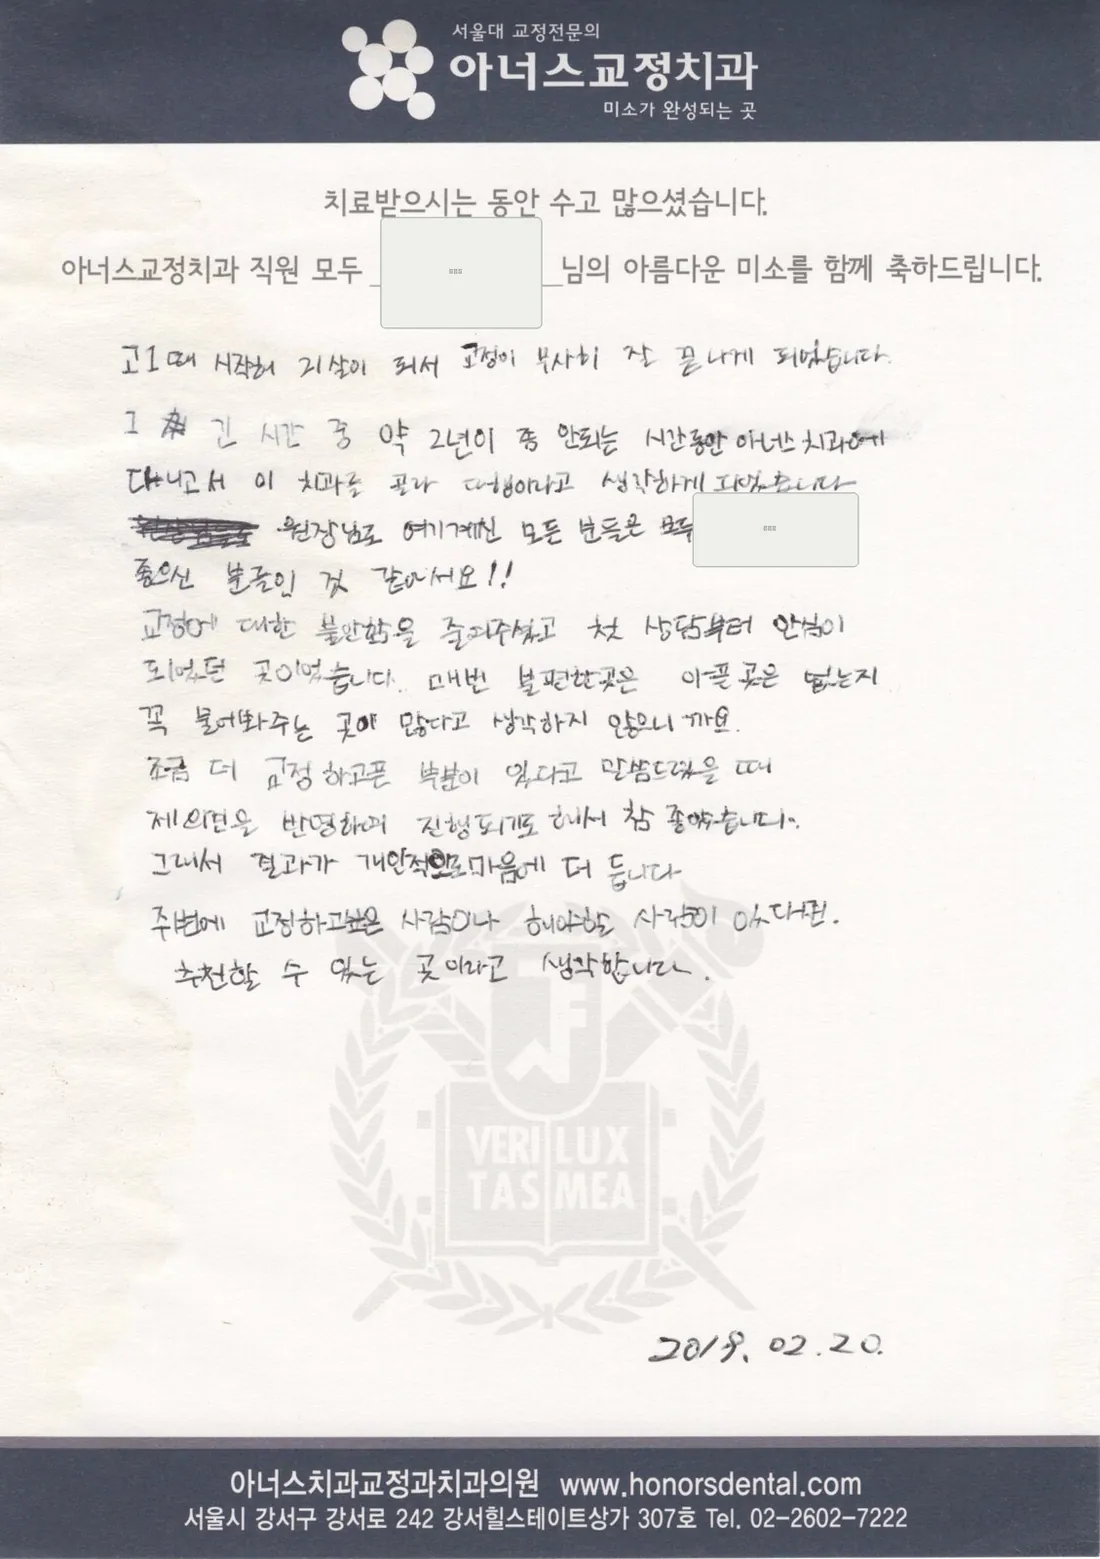 서울대 교정전문의
아너스교정치과
미소가 완성되는 곳
치료받으시는 동안 수고 많으셨습니다.
아너스교정치과 직원 모두 님의 아름다운 미소를 함께 축하드립니다.
고1때 시작해 21살이 되서 교정이 무사히 잘 끝나게 되었습니다.
그 긴 시간 중 약 2년이 좀 안되는 시간동안 아너스 치과에
다니고서 이 치과로 골라 다행이라고 생각하게 되었습니다
원장님도 여기계신 모든 분들은 모두
좋으신 분들인 것 같아서요!!
교정에 대한 불안함을 줄여주셨고 첫 상담부터 안심이
되었던 곳이었습니다. 매번 불편한곳은 아픈 곳은 없는지
꼭 물어봐주는 곳이 많다고 생각하지 않으니까요.
조금 더 교정하고픈 부분이 있다고 말씀드렸을 때
제의견을 반영하여 진행되기도 해서 참 좋았습니다.
그래서 결과가 개인적으로 마음에 더 듭니다
주변에 교정하고싶은 사람이나 해야할 사람이 있다면.
추천할 수 있는 곳이라고 생각합니다.
VERI LUX
TAS MEA
2019. 02. 20.
아너스치과교정과치과의원 www.honorsdental.com
서울시 강서구 강서로 242 강서힐스테이트상가 307호 Tel. 02-2602-7222